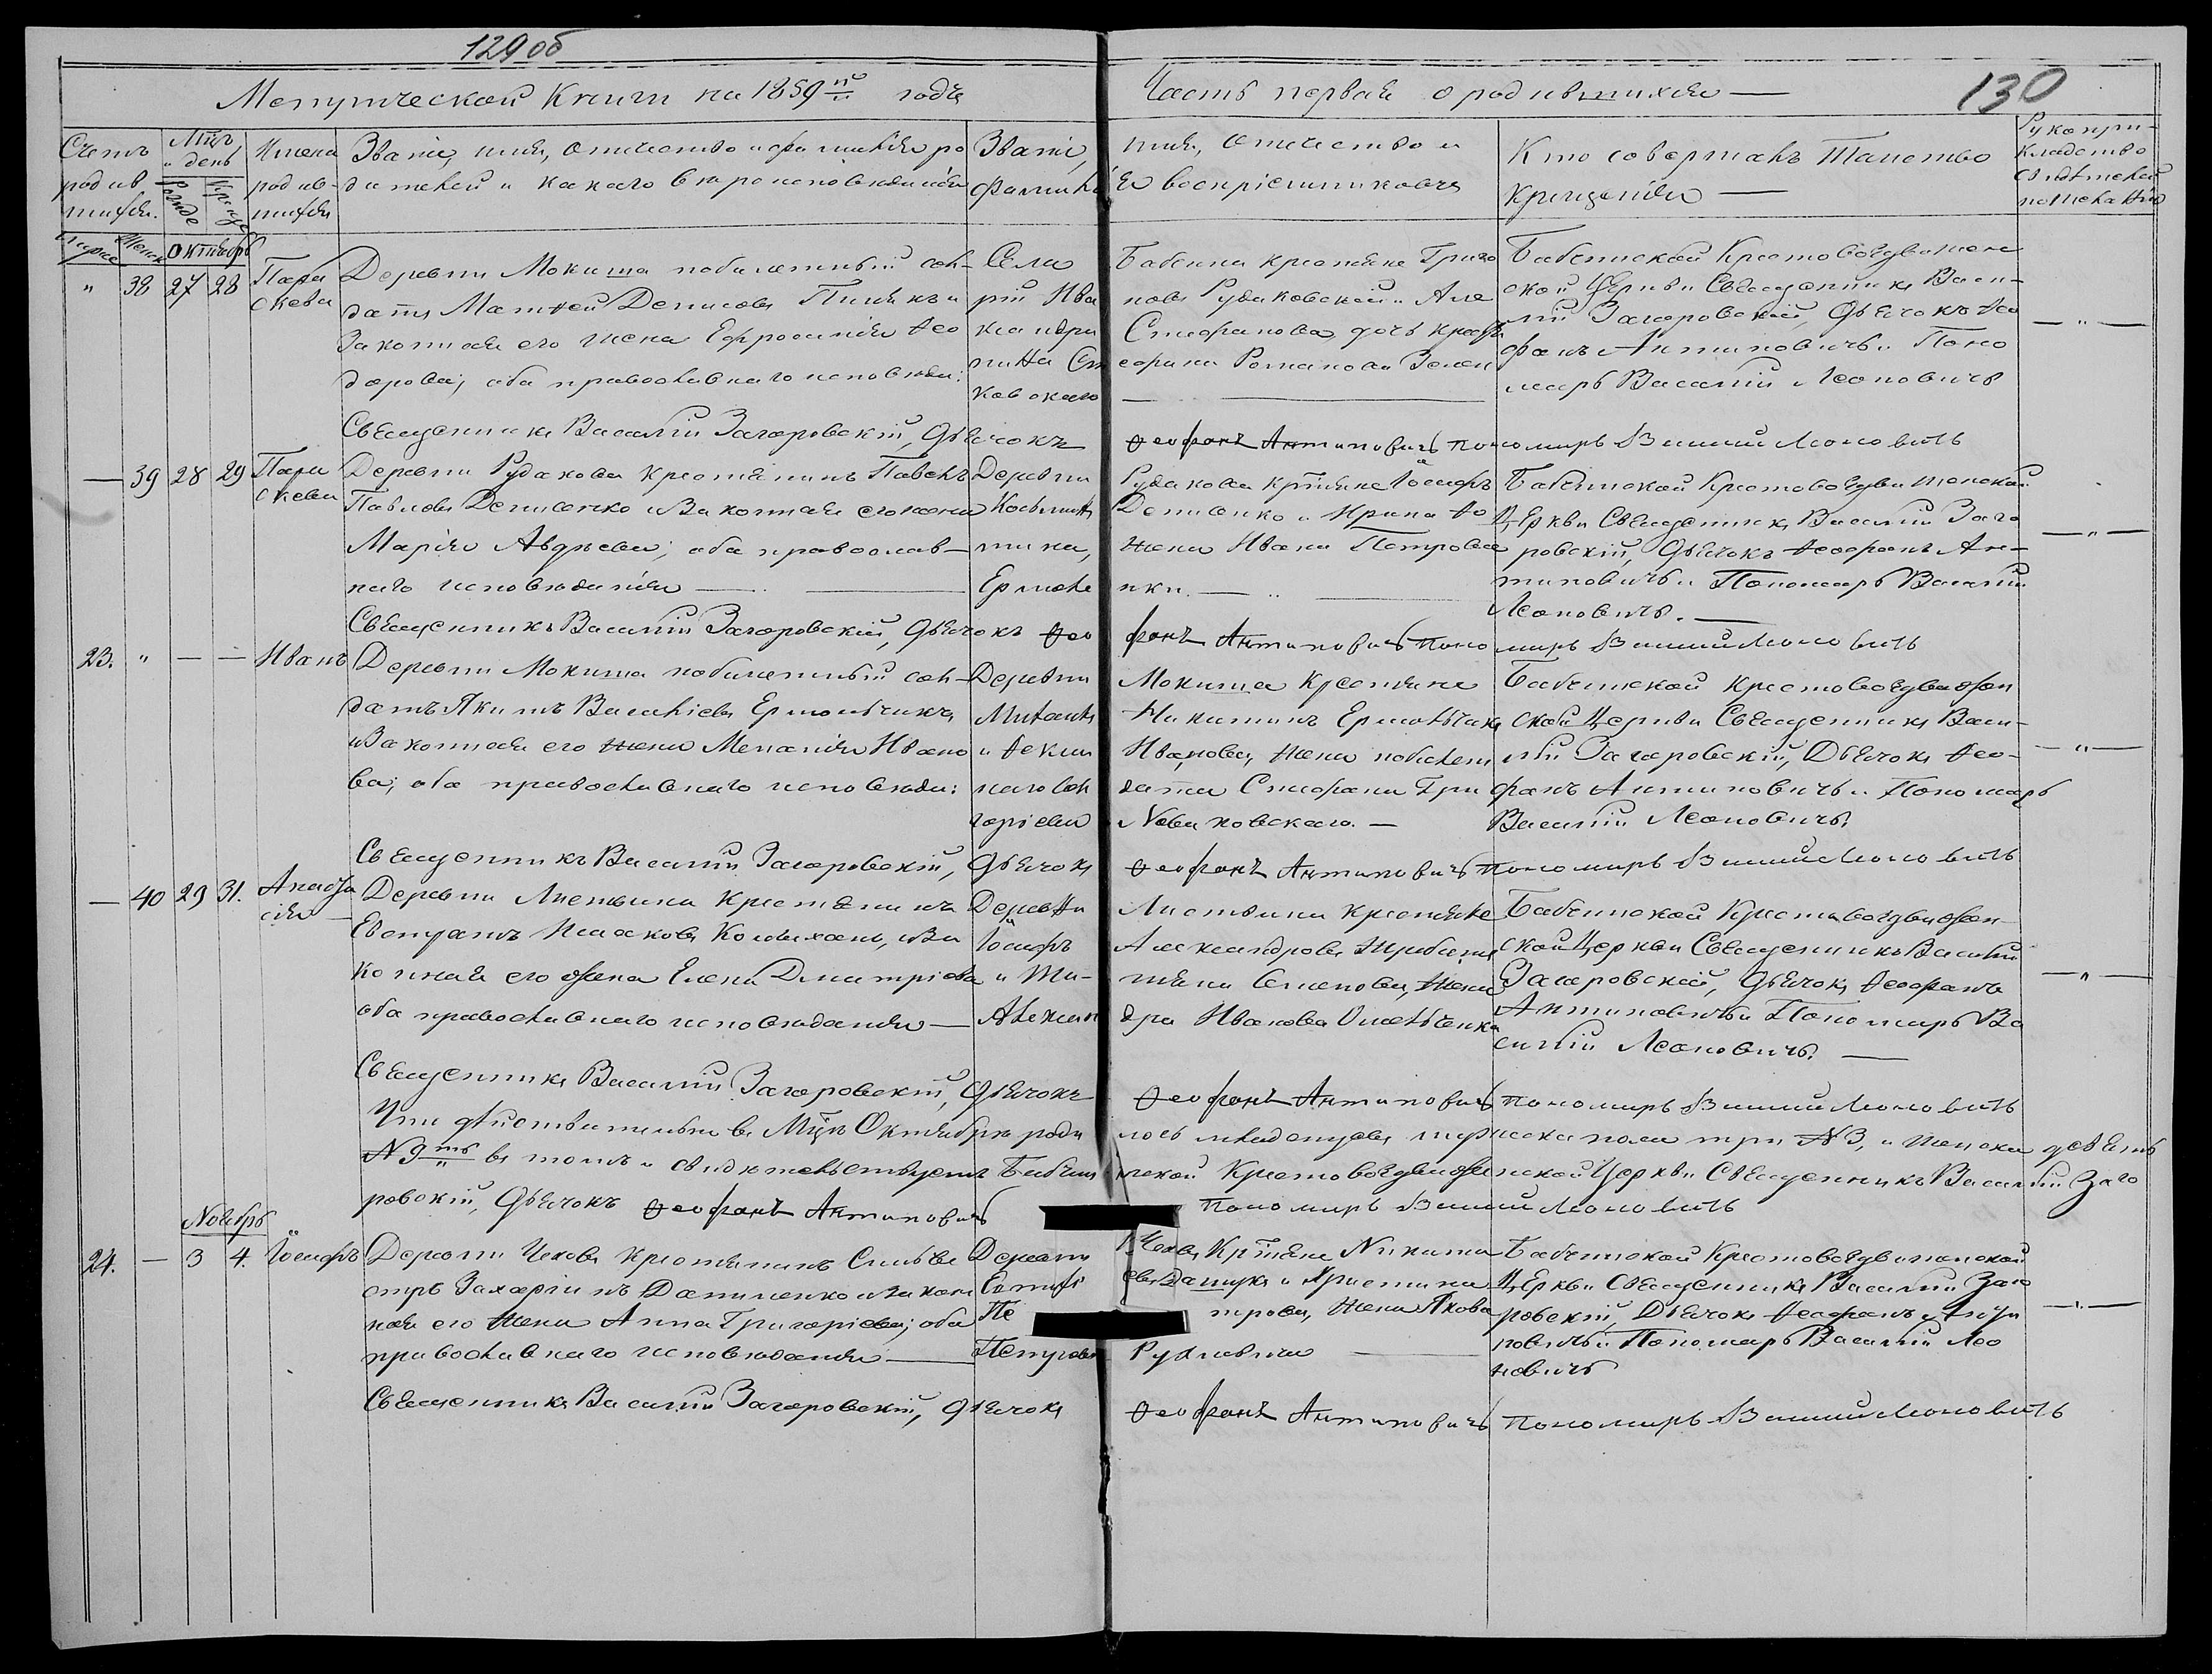 129 об
Метрической Книги на 1859й годъ
Часть первая о родившихся
130
Счетъ родив шихся.
Мцъ и день
Имена родив-шихся
Званіе, имя, отчество и фамилія ро
дителей и какого вѣроисповѣданія
Званіе, имя, отчество и
фамилія воспріемниковъ
Кто совершалъ Таинство
Крещенія
Рукопри-
кладство
свидѣтелей
по желанію
Октябрь
" 38 27 28 Пара
скева
Деревни Мокиша побилетный сол-
датъ Матѳей Денисовъ
Законная его жена Евфросинія Ѳео
дорова; оба православнаго исповѣда:
Села Бабчина крестьяне Григо
рій Ива новъ Рудаковскій и Але
ксандри Стефанова дочь
Бабчинской Крестовоздвижен
ской Церкви Священникъ Васи-
лій Загоровскій, Дьячокъ Ѳео
фанъ Антиповичъ и Поно
марь Василій Леоновичъ
Священникъ Василій Загоровскій, Дьячокъ Ѳеофанъ Антиповичъ пономарь Василій Леоновичъ
— 39 28 29 Пара
скева
Деревни Рудакова крестьянинъ Павелъ
Павловъ Денисенко и Законная его жена
Марія Авдѣева; оба православ-
наго исповѣданія
Деревни Рудакова кртьяне Іосифъ
Денисенко и Ирина
жена Ивана Петрова
Ермоле нки.
Бабчинской Крестовоздвиженской
Церкви Священникъ Василій Заго
ровскій, Дьячокъ Ѳеофанъ Ан-
типовичъ и Пономарь Василій
Леоновичъ.
Священникъ Василій Загоровскій, Дьячокъ Ѳеофанъ Антиповичъ пономарь Василій Леоновичъ
23. " — — Иванъ
Деревни Мокиша побилетный сол-
датъ Якимъ Василіевъ Ермольчикъ
и Законная его жена Меланія Ивано
ва; оба православнаго исповѣда:
Деревни Мокиша Крестьяне
Михаилъ Никитинъ Ермольчикъ
и Ѳекла Иванова, жена побилет
наго сол дата Стефана Гри
горіева Новаковскаго.
Бабчинской Крестовоздвижен
ской Церкви Священникъ Васи-
лій Загоровскій, Дьячокъ Ѳео-
фанъ Антиповичъ и Пономарь
Василій Леоновичъ.
Священникъ Василій Загоровскій, Дьячокъ Ѳеофанъ Антиповичъ пономарь Василій Леоновичъ
— 40 29 31. Анаста
сія
Деревни Листвина Крестьянинъ
Евстратъ Исааковъ и За
конная его жена Елена Дмитріева
оба православнаго исповѣданія
Деревни Листвина крестьяне
Іосифъ Александровъ
и Ма- Семенова, жена
Алексан дра Иванова
Бабчинской Крестовоздвижен
ской Церкви Священникъ Василій
Загоровскій, Дьячокъ Ѳеофанъ
Антиповичъ и Пономарь Ва
силій Леоновичъ.
Священникъ Василій Загоровскій, Дьячокъ Ѳеофанъ Антиповичъ пономарь Василій Леоновичъ
Что дѣйствительно въ Мцѣ Октябрѣ роди лось младенцевъ мужеска пола три №3, и женска девять
№9ть въ томъ и свидѣтельствуетъ Бабчин ской Крестовоздвиженской Церкви Священникъ Василій Заго
ровскій, Дьячокъ Ѳеофанъ Антиповичъ Пономарь Василій Леоновичъ
Ноябрь
24. — 3 4. Іосифъ
Деревни Чехова Крестьянинъ Сильве
стръ Захаріинъ Даниленко и Закон
ная его жена Анна Григоріева; оба
православнаго исповѣданія
Деревни Чехова Кртьяне Никита
и Христина
Пе трова, жена Якова
Бабчинской Крестовоздвиженской
Церкви Священникъ Василій Заго
ровскій, Дьячокъ Ѳеофанъ Анти
повичъ и Пономарь Василій Лео
новичъ
Священникъ Василій Загоровскій, Дьячокъ Ѳеофанъ Антиповичъ пономарь Василій Леоновичъ